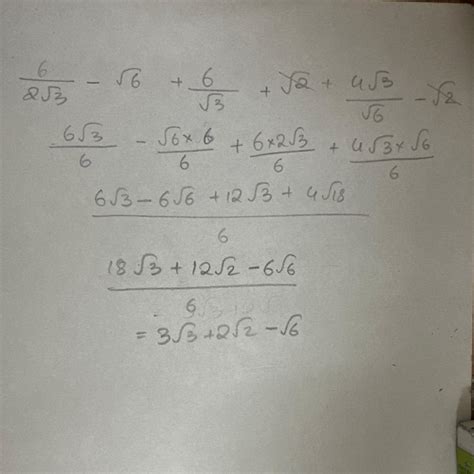 6/2√3 - √6 + 6/√3 + √2 + 4√3/√6 - √2
6√3/6 - √6×6/6 + 6×2√3/6 + 4√3×√6/6
6√3 - 6√6 + 12√3 + 4√18 / 6
18√3 + 12√2 - 6√6 / 6
= 3√3 + 2√2 - √6